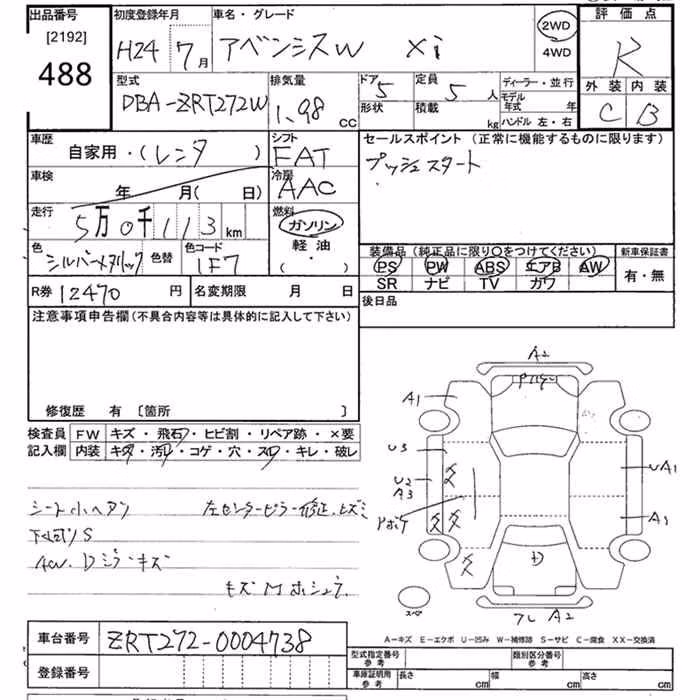 出品番号 初度登録年月 車名・グレード 評価点
[2192]
488
H24 7月 アベンシスW Xi 2WD 4WD R
外装 内装
C B
型式 排気量 ドア 定員 ディーラー・並行
DBA-ZRT272W 1.98 cc 5 5人 モデル年式 年
形状 積載 kg ハンドル 左・右
車歴 シフト セールスポイント(正常に機能するものに限ります)
自家用・(レンタ ) FAT プッシュスタート
車検 年 月( 日) 冷房 AAC
走行 5万0千113km 燃料 ガソリン 軽油 ( ・ )
色 シルバーメタリック 色替 色コード 1F7
装備品(純正品に限り○をつけてください) 新車保証書
PS PW ABS エアB AW 有・無
SR ナビ TV カワ
R券 12470 円 名変期限 月 日 後日品
注意事項申告欄(不具合内容等は具体的に記入して下さい)
修復歴 有 [箇所 ]
検査員 FW キズ・飛石・ヒビ割・リペア跡・×要
記入欄 内装 キズ・汚れ・コゲ・穴・スレ・キレ・破レ
シート小ヘタリ 左センターピラー修正、ヒズミ
下回りS
AW、Dミラーキズ
A2
A1
U3
U2
A3
UA1
A1
スペア
A2
A-キズ E-エクボ U-凹み W-補修跡 S-サビ C-腐食 XX-交換済
車台番号 ZRT272-0004738
登録番号
型式指定番号 参考 類別区分番号 参考
車庫証明用 参考 長さ cm 幅 cm 高さ cm